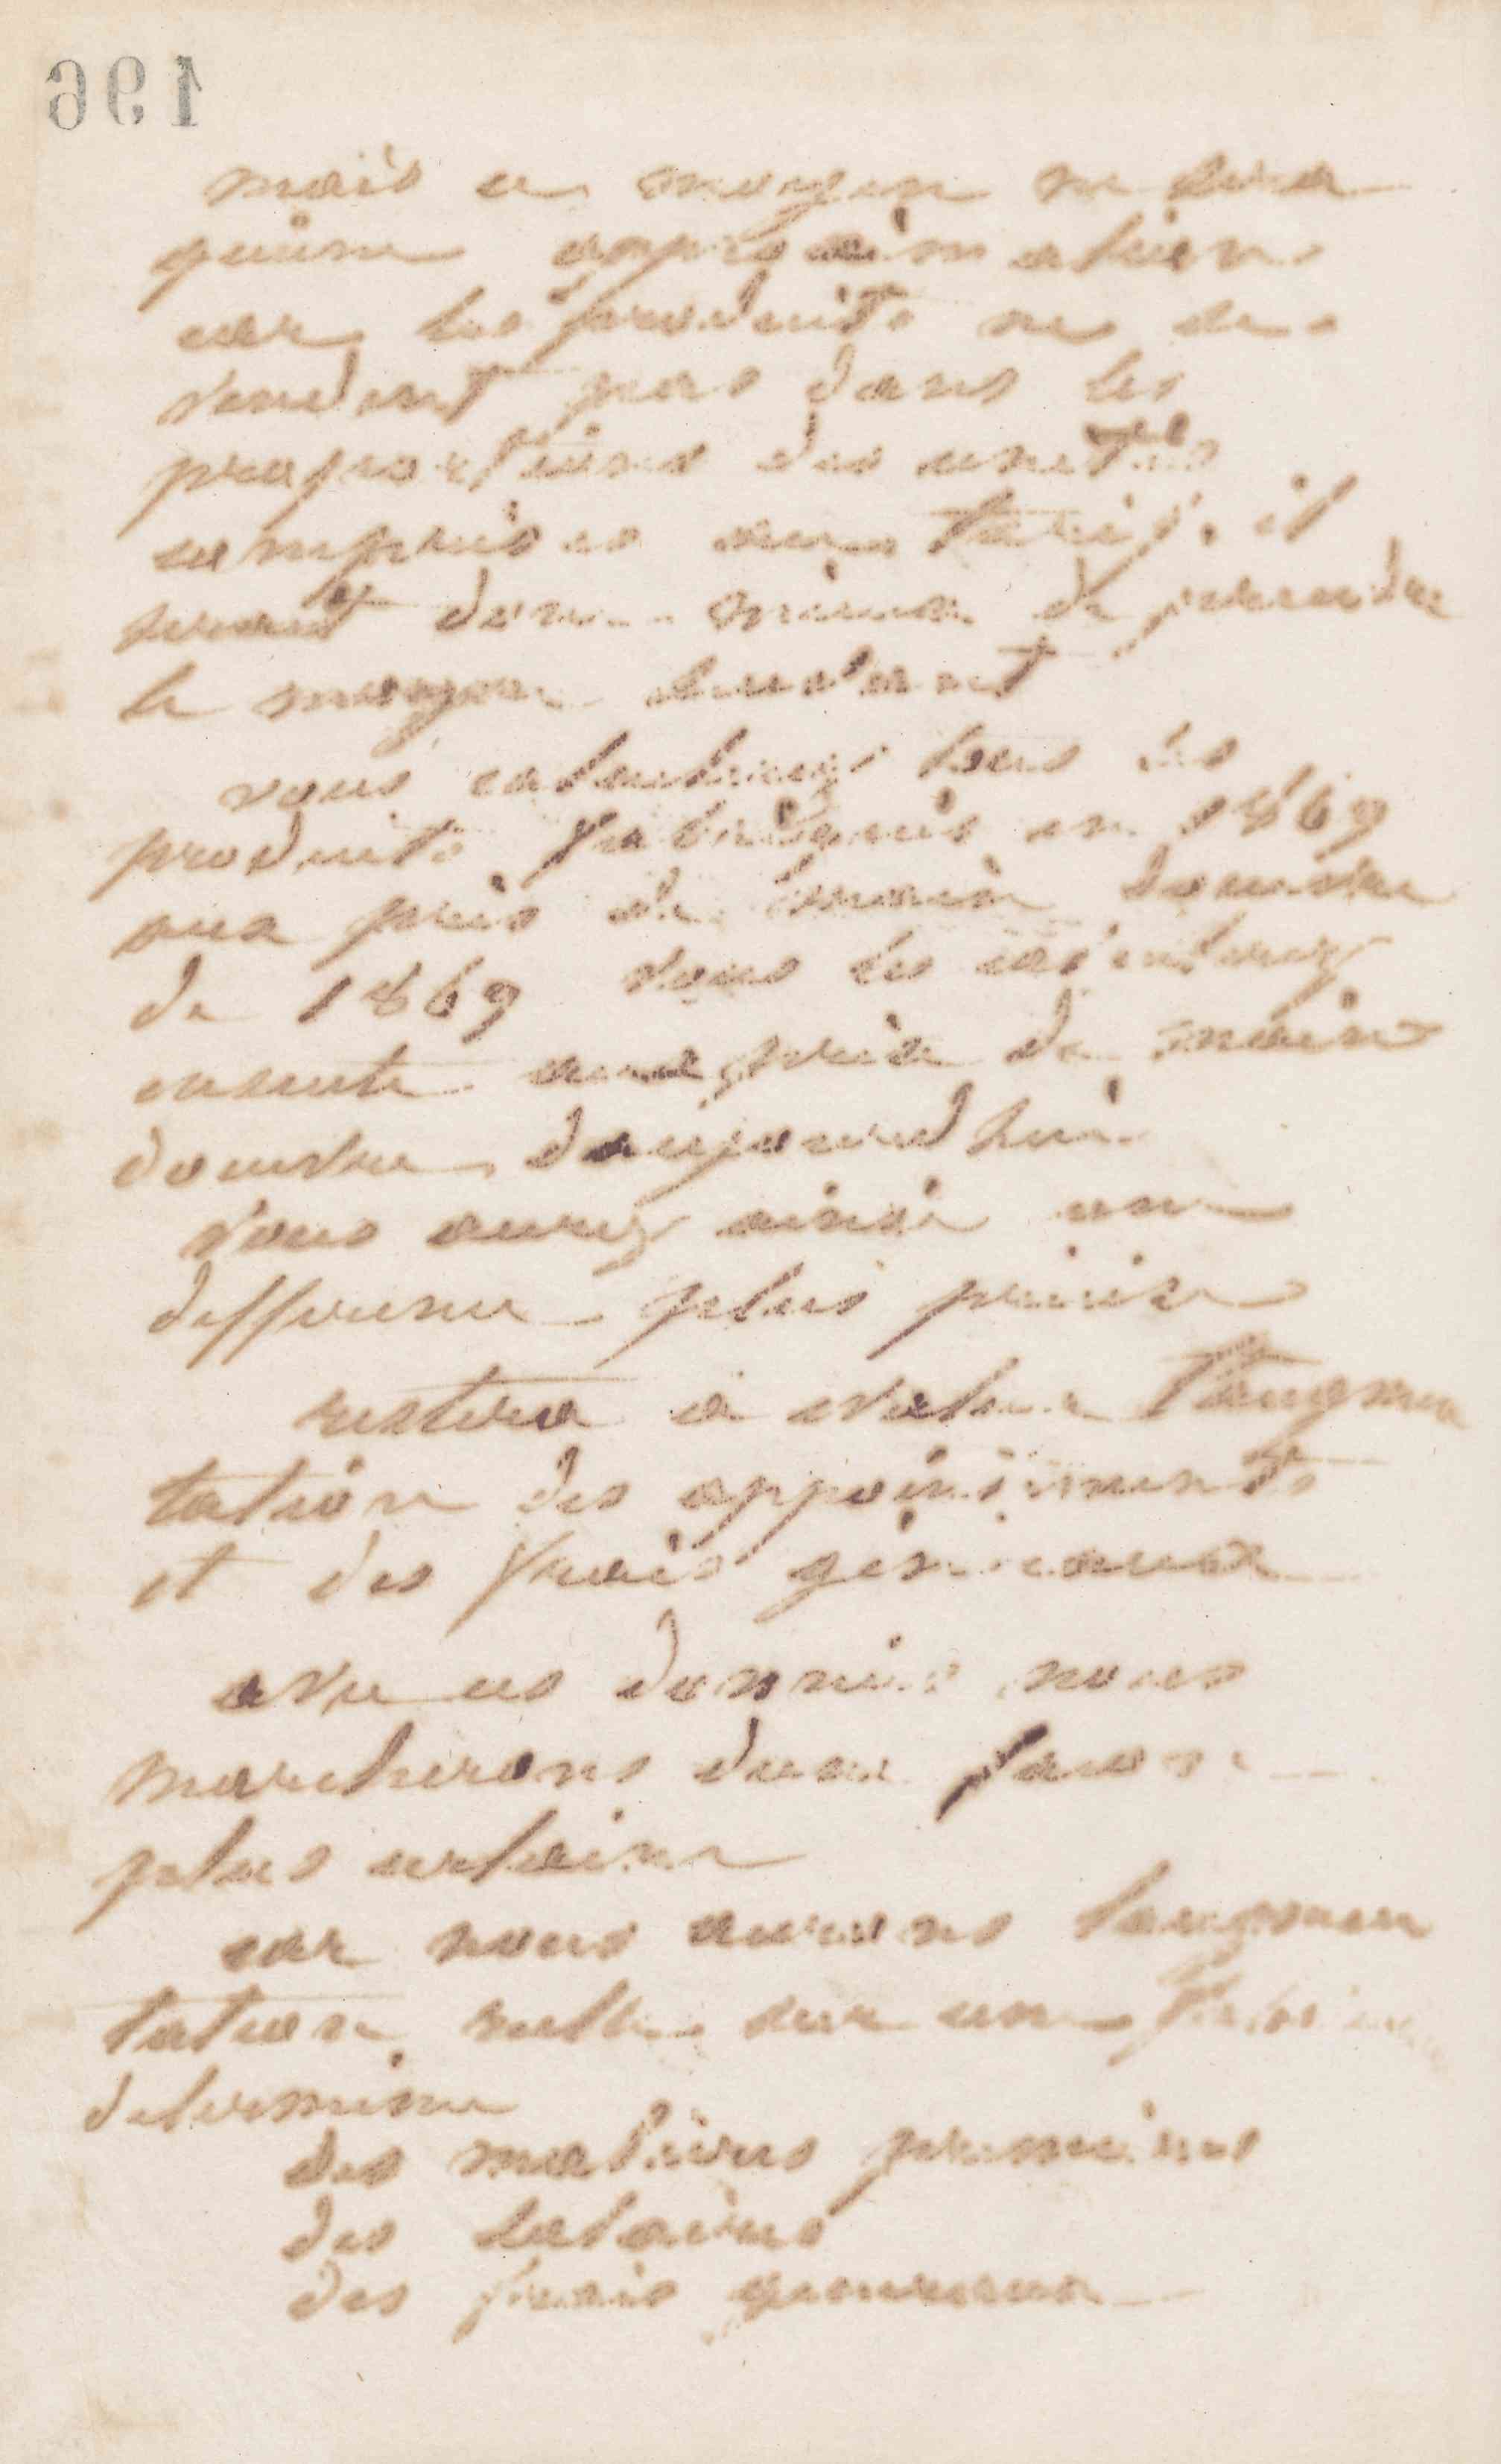 196
mais ce moyen ne sera
qu'une approximation
car les produits ne se
vendent pas dans les
proportions des unités
comprises au tarif. il
serait donc mieux de prendre
le moyen suivant
vous calculerez tous les
produits fabriqués en 1869
aux prix de main doeuvre
de 1869 vous les calculerez
ensuite aux prix de main
doeuvre daujourdhui
vous aurez ainsi une
difference plus precise
restera a evaluer l'augmen
tation des appointements
et des frais généraux
avec ces données nous
marcherons dune facon
plus certaine
car nous aurons laugmen
tation reelle sur une
determinée
des matieres premieres
des salaires
des frais generaux